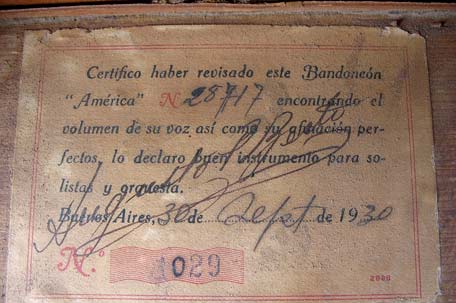 Certifico haber revisado este Bandoneón
"América" N 28717 encontrando el
volumen de su voz así como su afinación per-
fectos, lo declaro buen instrumento para so-
listas y orquesta.
Buenos Aires, 30 de Sept de 1930
N.º 1029